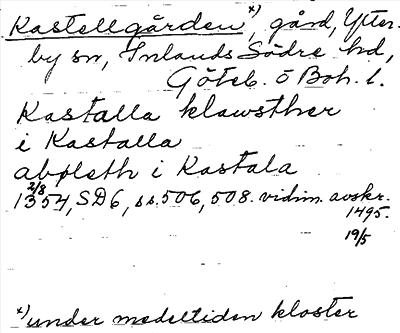 Kastellgården x), gård, Ytter-
by sn, Inlands Södre hd,
Göteb. o Boh. l.
Kastalla klawsther
i Kastalla
abpleth i Kastala
2/8
1354, SD6, ss. 506, 508. vidim. avskr.
1495.
19/5
x) under medeltiden kloster